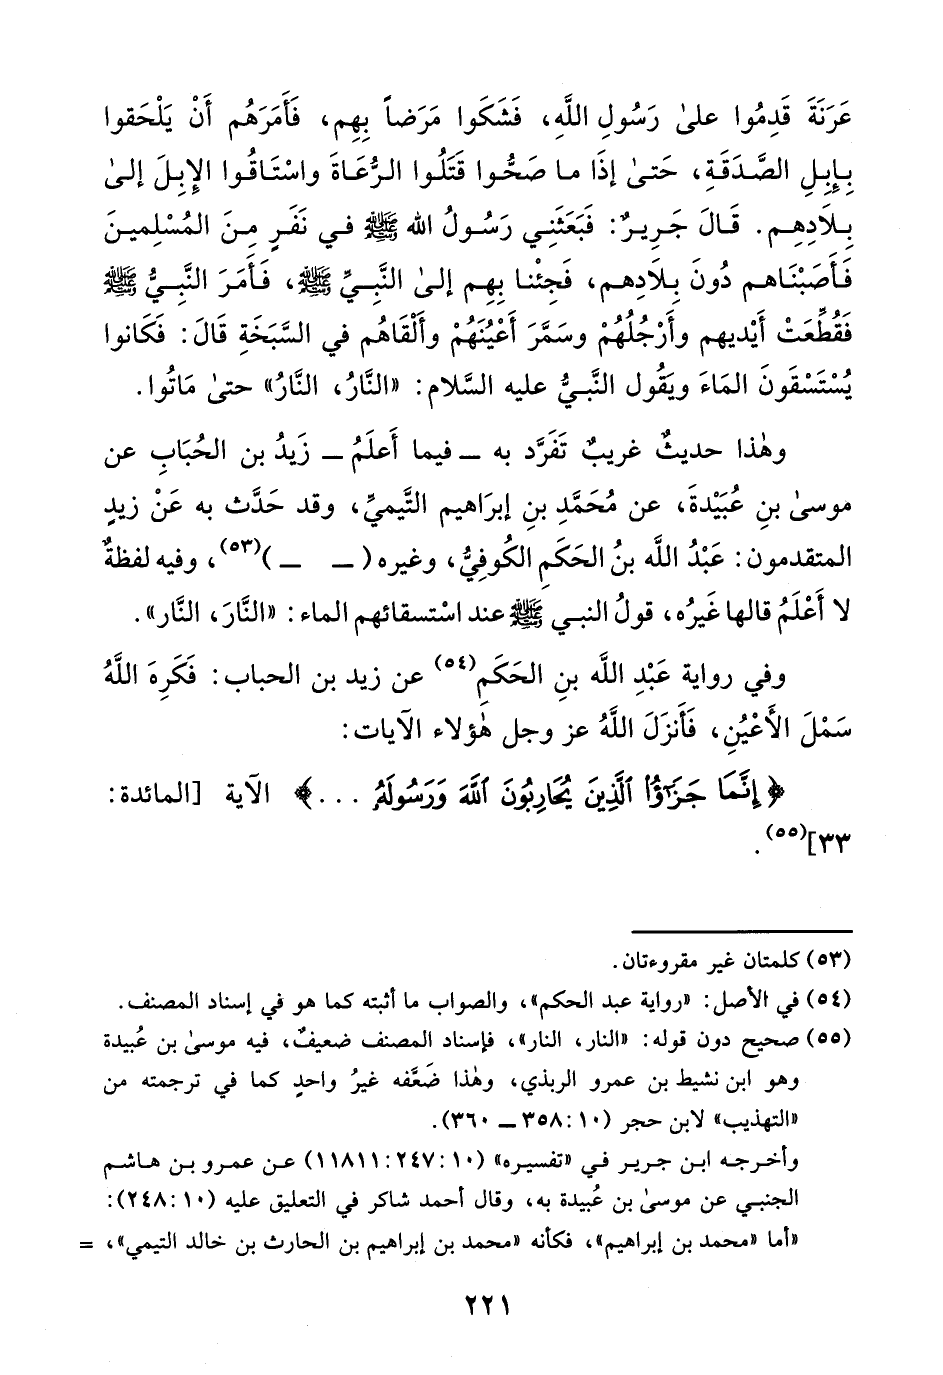 عَرَنَةَ قَدِمُوا علىٰ رَسُولِ اللَّهِ، فَشَكَوا مَرَضاً بِهِم، فَأَمَرَهُم أَنْ يَلْحَقوا
بِإِبِلِ الصَّدَقَةِ، حَتىٰ إذَا ما صَحُّوا قَتَلُوا الرُّعَاةَ واسْتَاقُوا الإِبِلَ إلىٰ
بِلَادِهِم. قَالَ جَرِيرٌ: فَبَعَثَنِي رَسُولُ الله ﷺ في نَفَرٍ مِنَ المُسْلِمينَ
فَأَصَبْنَاهم دُونَ بِلَادِهم، فَجِئْنا بِهِم إلىٰ النَّبِيِّ ﷺ، فَأَمَرَ النَّبِيُّ ﷺ
فَقُطِّعَتْ أَيْديهم وأَرْجُلُهُمْ وسَمَّرَ أَعْيُنَهُمْ وأَلْقَاهُم في السَّبَخَةِ قَالَ: فَكَانوا
يُسْتَسْقَونَ المَاءَ ويَقُول النَّبيُّ عليه السَّلام: «النَّارُ، النَّارُ» حتىٰ مَاتُوا.
وهٰذا حديثٌ غريبٌ تَفَرَّد به ــ فيما أَعلَمُ ــ زَيدُ بن الحُبَابِ عن
موسىٰ بنِ عُبَيْدةَ، عن مُحَمَّدِ بنِ إبرَاهيم التَّيميِّ، وقد حَدَّث به عَنْ زيدٍ
المتقدمون: عَبْدُ اللَّه بنُ الحَكَمِ الكُوفِيُّ، وغيره (ــ ــ)(٥٣)، وفيه لفظةٌ
لا أَعْلَمُ قالها غَيرُه، قولُ النبي ﷺ عند اسْتسقائهم الماء: «النَّارَ، النَّار».
وفي رواية عَبْدِ اللَّه بنِ الحَكَمِ(٥٤) عن زيد بن الحباب: فَكَرِهَ اللَّهُ
سَمْلَ الأَعْيُنِ، فَأَنزَلَ اللَّهُ عز وجل هٰؤلاء الآيات:
﴿إِنَّمَا جَزَٰٓؤُا۟ ٱلَّذِينَ يُحَارِبُونَ ٱللَّهَ وَرَسُولَهُۥ ...﴾ الآية [المائدة:
٣٣](٥٥).
(٥٣) كلمتان غير مقروءتان.
(٥٤) في الأصل: «رواية عبد الحكم»، والصواب ما أثبته كما هو في إسناد المصنف.
(٥٥) صحيح دون قوله: «النار، النار»، فإسناد المصنف ضعيفٌ، فيه موسىٰ بن عُبيدة
وهو ابن نشيط بن عمرو الربذي، وهٰذا ضَعَّفه غيرُ واحدٍ كما في ترجمته من
«التهذيب» لابن حجر (١٠: ٣٥٨ ــ ٣٦٠).
وأخرجه ابن جرير في «تفسيره» (١٠: ٢٤٧: ١١٨١١) عن عمرو بن هاشم
الجنبي عن موسىٰ بن عُبيدة به، وقال أحمد شاكر في التعليق عليه (١٠: ٢٤٨):
«أما «محمد بن إبراهيم»، فكأنه «محمد بن إبراهيم بن الحارث بن خالد التيمي»، =
٢٢١